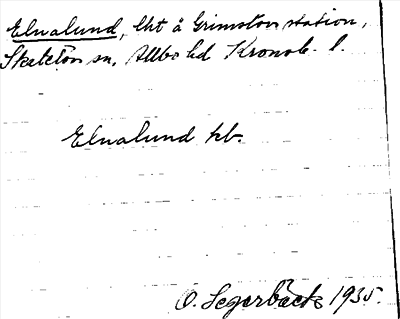 Elnalund, lht å Grimslöv station,
Skatelöv sn, Allbo hd Kronob. l.
Elnalund hb.
O. Segerbäck 1935.